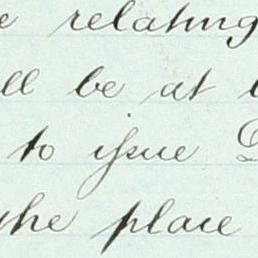 relating
be at
to issue
the place